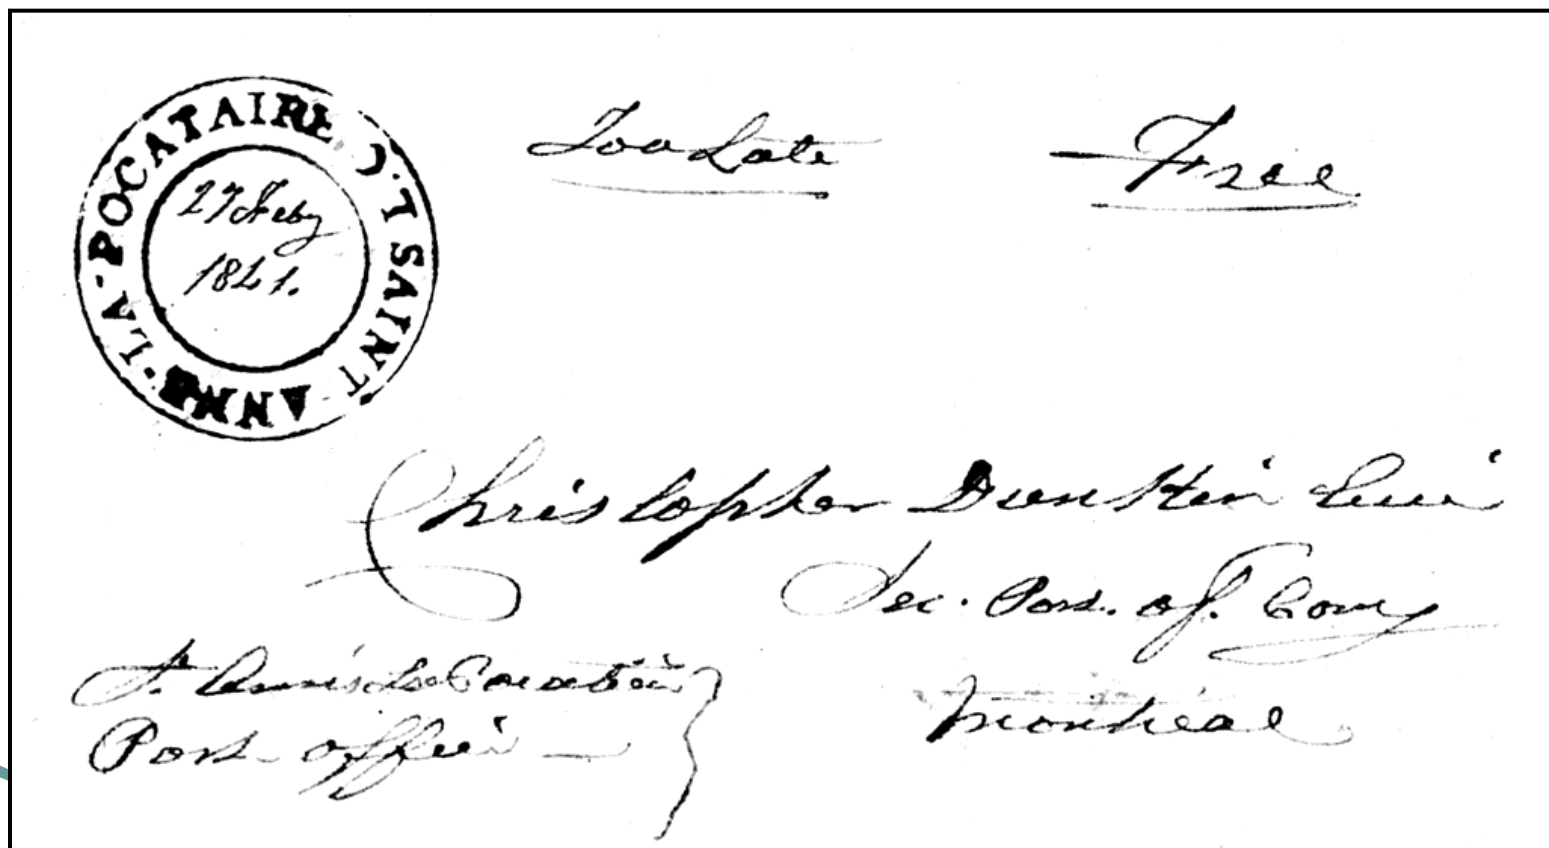 SAINT ANNE-LA-POCATAIRE
27 Feby
1841.
Too Late
Free
Christopher Dunkin
Sec. Post. of. Comy
Montreal
St. Annes La Pocatiere
Post office